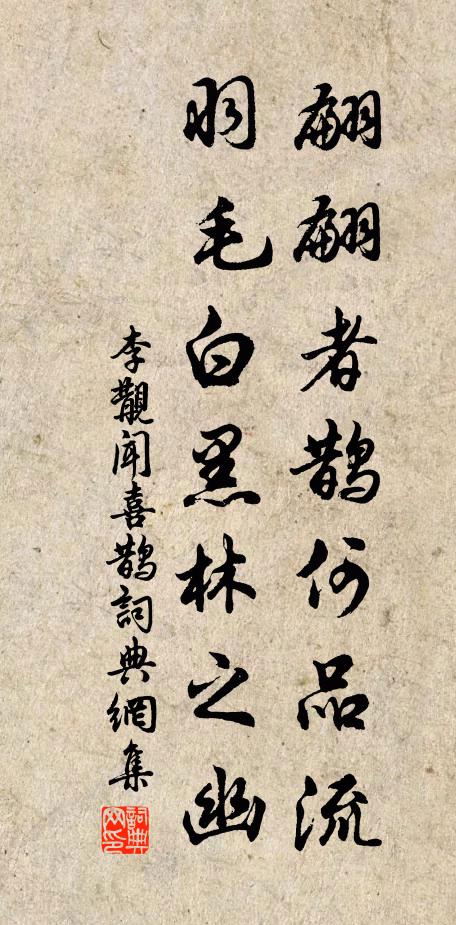 翩翩者鹊何品流
羽毛白黑林之幽
李觏闻喜鹊詞典網集
詞典网印